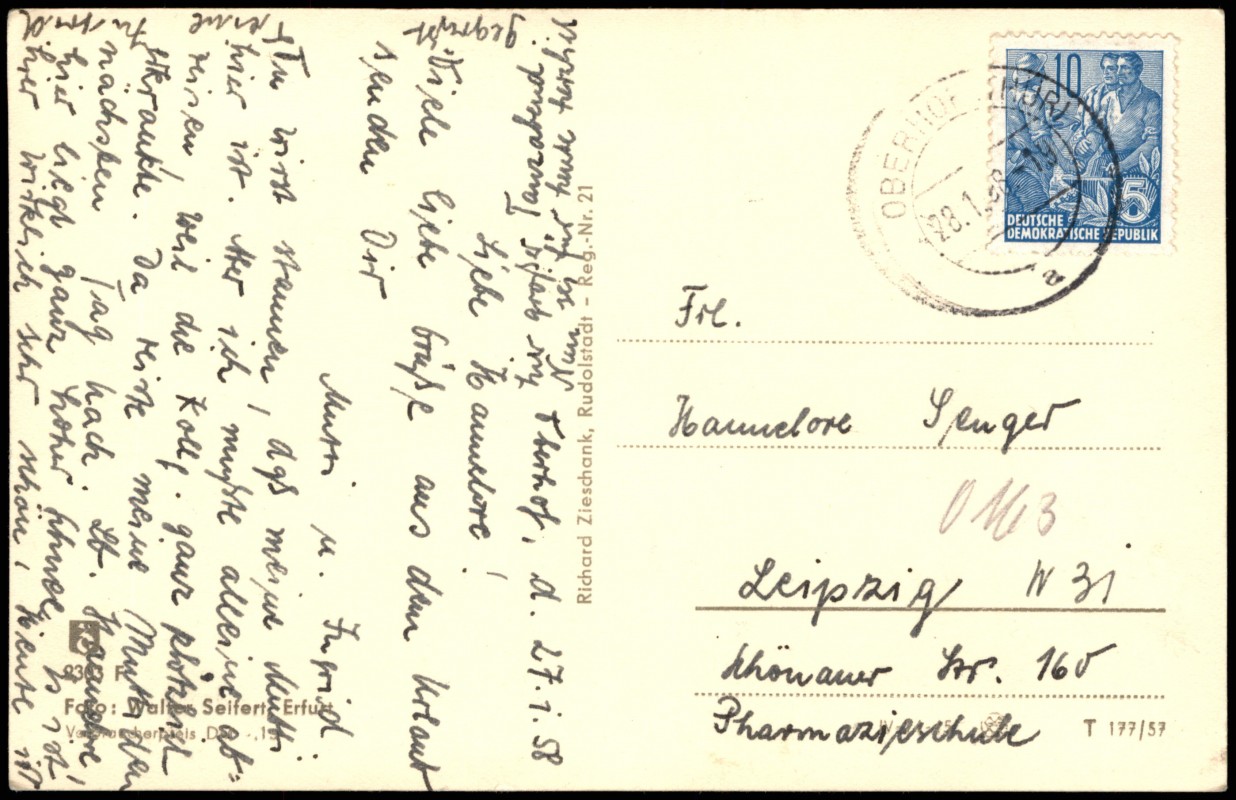 Oberhof, d. 27.1.58
Liebe Hannelore!
Viele liebe Grüße aus dem Urlaub
senden Dir
Mutti u. Ingrid.
Du wirst staunen, daß meine Mutti
hier ist. Aber ich mußte alleine ab=
reisen weil die Kolleg. ganz plötzlich
erkrankte. Da reiste meine Mutti den
nächsten Tag nach. Lb. Hannelore,
hier liegt ganz hoher Schnee, Es ist
hier wirklich sehr schön, Heute ist
Tanzprogramm.
Nun sei für heute herzlich
gegrüßt
9383 R
Foto: Walter Seifert, Erfurt
Verbraucherpreis
Richard Zieschank, Rudolstadt – Reg.-Nr. 21
10
5
DEUTSCHE
DEMOKRATISCHE REPUBLIK
OBERHOF (THÜR)
28.1.58
a
Frl.
Hannelore Senger
0163
Leipzig W 31
Schönauer Str. 160
Pharmazieschule
T 177/57